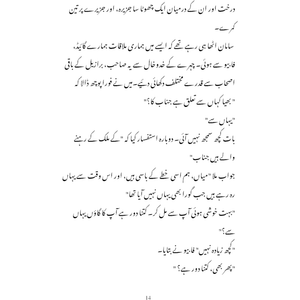 درخت اور ان کے درمیان ایک چھوٹا سا جزیرہ، اور جزیرے پر تین
کمرے۔
سامان اٹھا ہی رہے تھے کہ ایسے میں ہماری ملاقات ہمارے گائیڈ،
فابیو سے ہوئی۔ چہرے کے خدوخال سے یہ صاحب، برازیل کے باقی
اصحاب سے قدرے مختلف دکھائی دیئے۔ میں نے فوراً پوچھ ڈالا کہ
"بھیا کہاں سے تعلق ہے جناب کا؟"
"یہاں سے"
بات کچھ سمجھ نہیں آئی۔ دوبارہ استفسار کیا کہ "کے ملک کے رہنے
والے ہیں جناب"
جواب ملا "میاں، ہم اسی خطے کے باسی ہیں، اور اس وقت سے یہاں
رہ رہے ہیں جب گورا بھی یہاں نہیں آیا تھا"
"بہت خوشی ہوئی آپ سے مل کر۔ کتنا دور ہے آپ کا گاؤں یہاں
سے؟"
"کچھ زیادہ نہیں" فابیو نے بتایا۔
"پھر بھی، کتنا دور ہے؟"
14